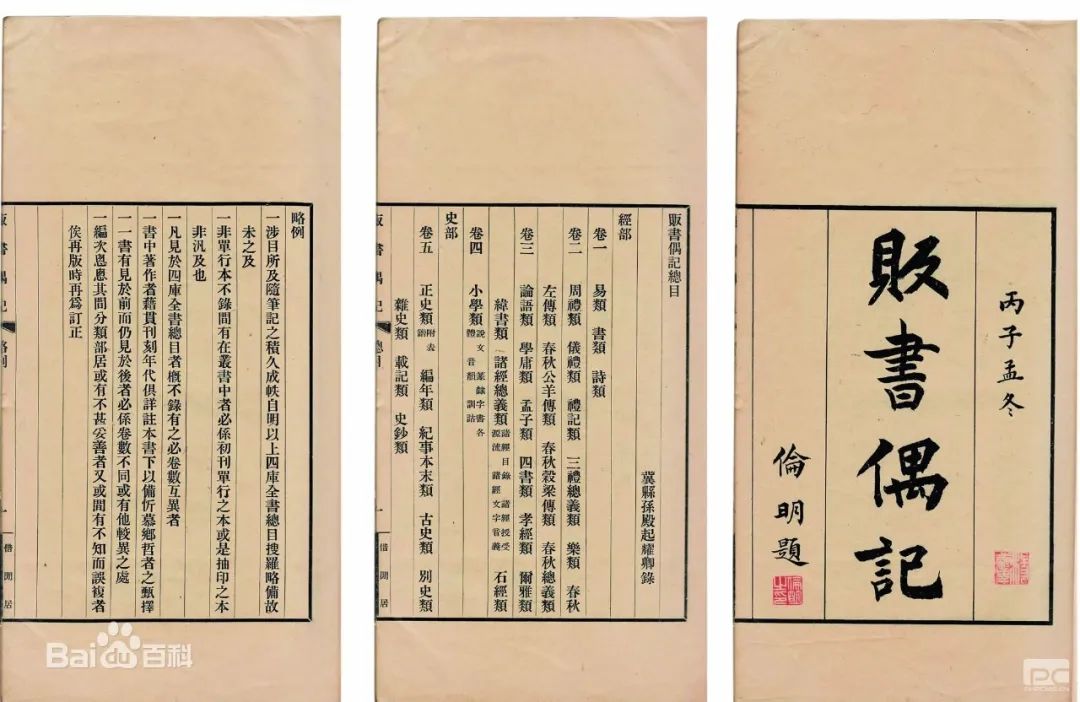 丙子孟冬
販書偶記
倫明題
販書偶記總目
冀縣孫殿起耀卿錄
經部
卷一 易類 書類 詩類
卷二 周禮類 儀禮類 禮記類 三禮總義類 樂類 春秋
左傳類 春秋公羊傳類 春秋穀梁傳類 春秋總義類
卷三 論語類 學庸類 孟子類 四書類 孝經類 爾雅類
緯書類 諸經總義類 諸經目錄 諸經授受源流 諸經文字音義 石經類
卷四 小學類 說文 篆隸字書各體 音韻 訓詁
史部
卷五 正史類 附表譜 編年類 紀事本末類 古史類 別史類
雜史類 載記類 史鈔類
總目
借閒居
略例
一涉目所及隨筆記之積久成帙自明以上四庫全書總目搜羅略備故
未之及
一非單行本不錄間有在叢書中者必係初刊單行之本或是抽印之本
非汎及也
一凡見於四庫全書總目者槪不錄有之必卷數互異者
一書中著作者籍貫刊刻年代俱詳註本書下以備忻慕鄉哲者之甄擇
一一書有見於前而仍見於後者必係卷數不同或有他較異之處
一編次悤悤其間分類部居或有不甚妥善者又或間有不知而誤複者
俟再版時再爲訂正
販書偶記
略例
一
借閒居
Bai百科